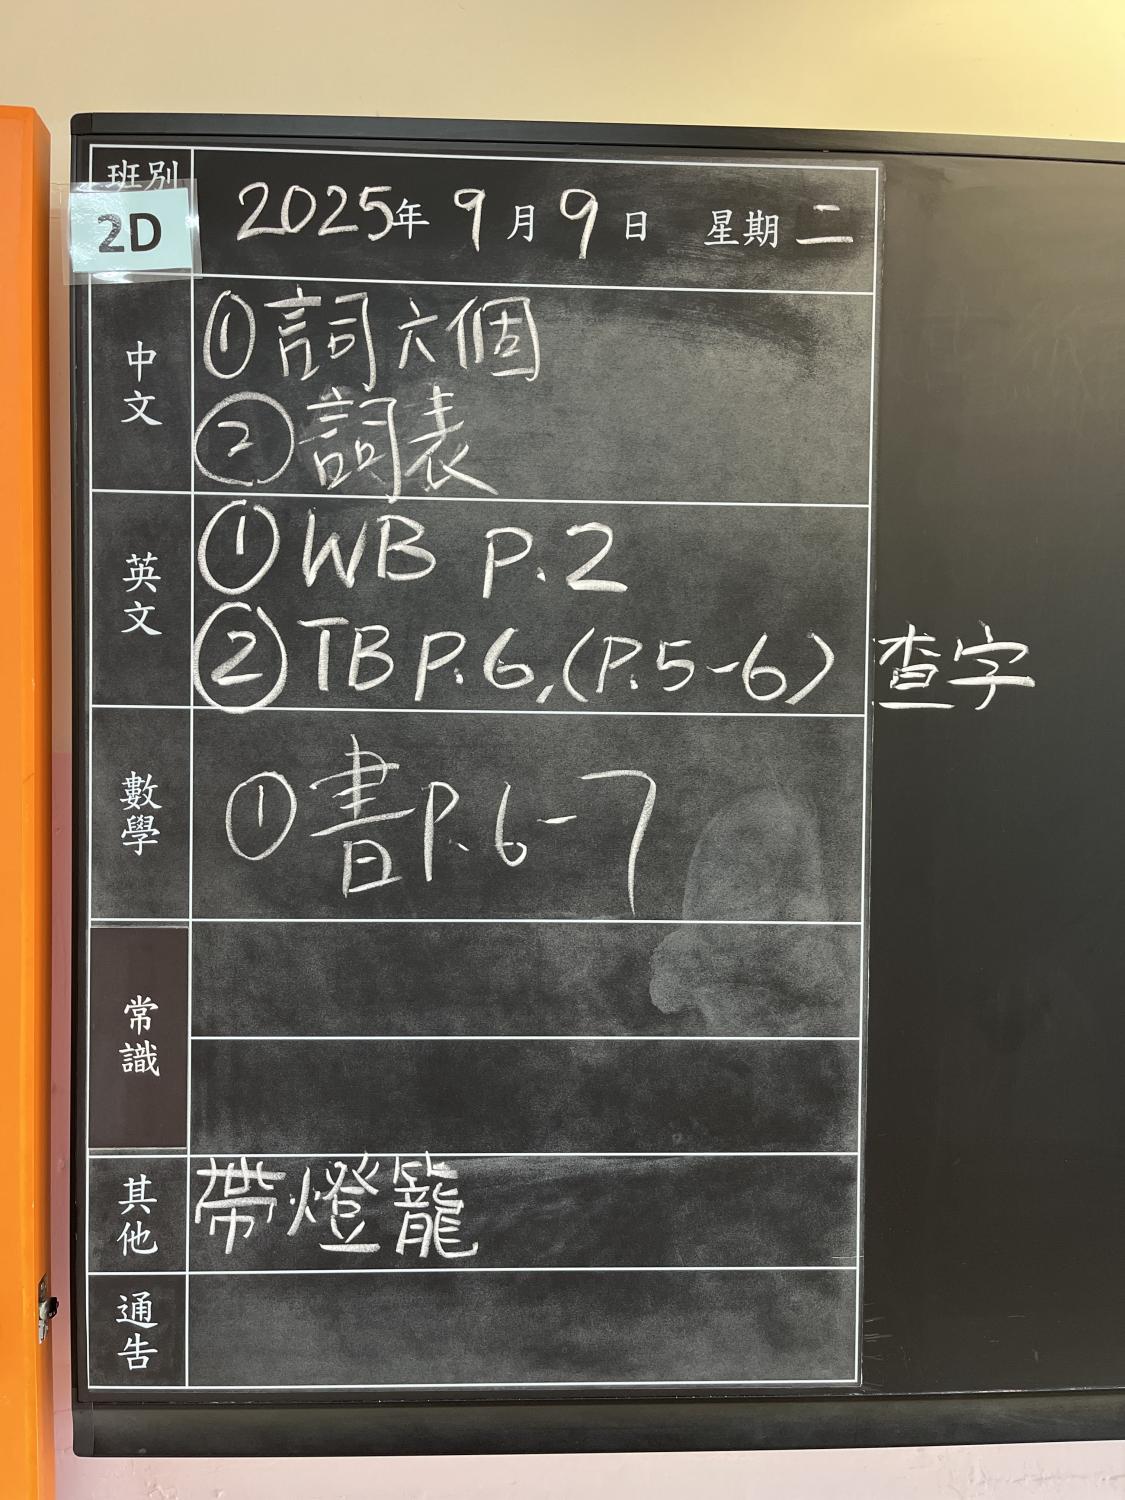 班別
2D
2025年 9月9日 星期二
中文
①詞六個
②詞表
英文
①WB P.2
②TB P.6,(P.5-6)查字
數學
①書P.6-7
常識
其他
帶燈籠
通告